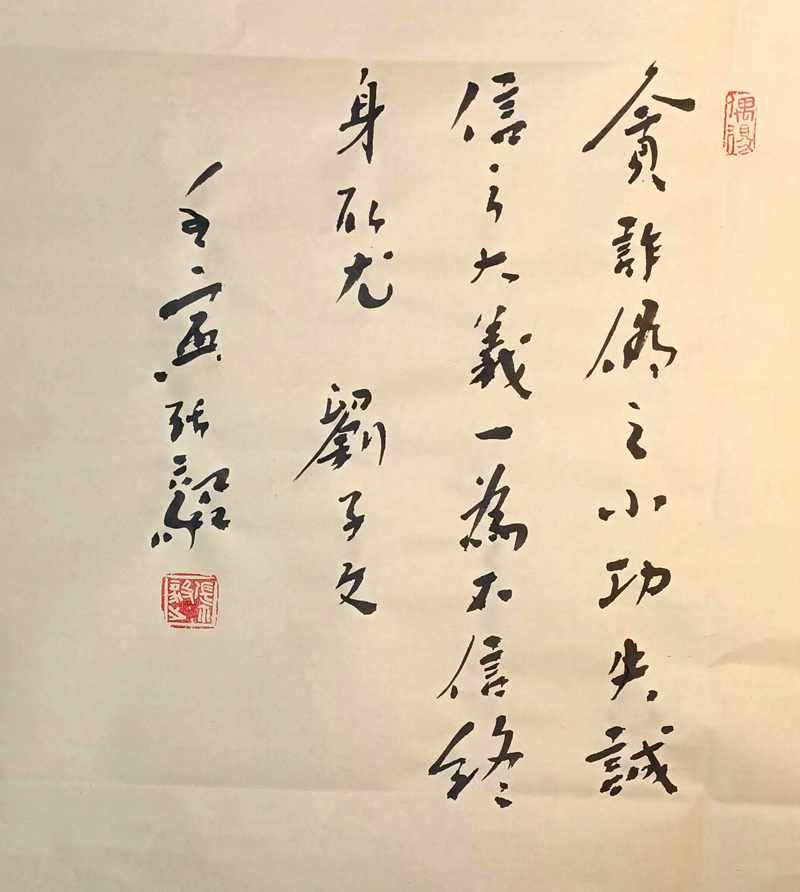 偶得
貪詐偽之小功失誠
信之大義一為不信終
身所尤 劉子文
壬寅張